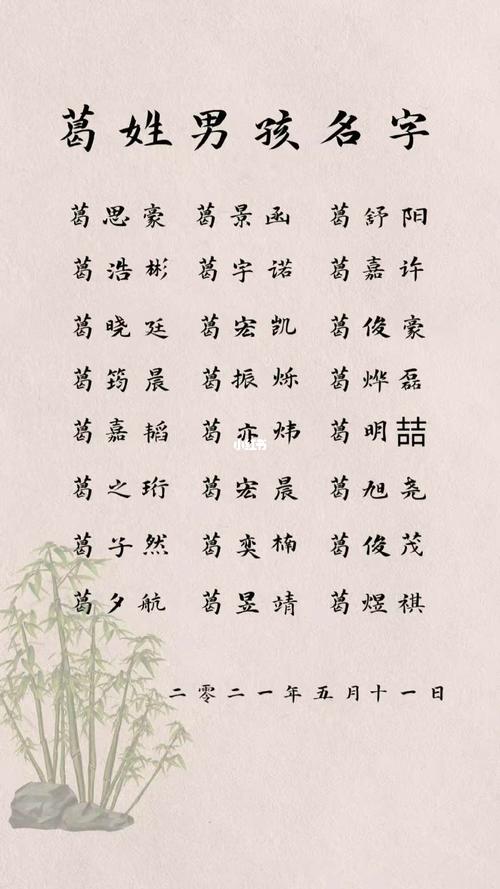 葛姓男孩名字
葛思豪 葛景函 葛舒阳
葛浩彬 葛宇诺 葛嘉许
葛晓廷 葛宏凯 葛俊豪
葛筠晨 葛振烁 葛烨磊
葛嘉韬 葛亦炜 葛明喆
小红书
葛之珩 葛宏晨 葛旭尧
葛子然 葛奕楠 葛俊茂
葛夕航 葛昱靖 葛煜祺
二零二一年五月十一日